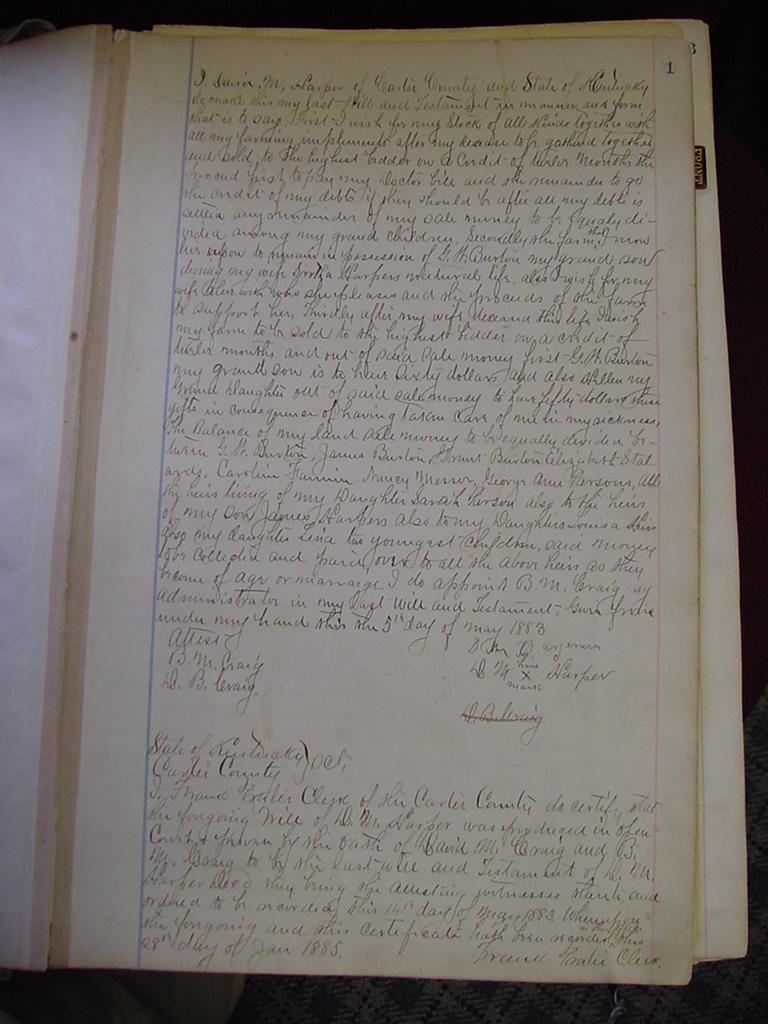 1
3
I David M, Harper of Carter County and State of Kentucky
do make this my last Will and Testament in manner and form
that is to say, First I wish for my Stock of all Kinds together with
all my farming impliments after my decease to be gathered together
and sold to the highest bidder on a Credit of twelve Months the
procead first to pay my Doctor bill and the remainder to go
the credit of my debts if they should be after all my debts is
settled any remainder of my sale money to be Equaly di-
vided among my grand Children. Secondly the farm that I now
live upon to remain in possession of G. W. Burton my grand son
during my wife Harpers natural life, also I wish for my
wife to live with who she pleases and the proceeds of the farm
to support her, Thirdly after my wife deceased this life I wish
my farm to be sold to the highest bidder on a credit of
twelve months and out of said sale money first G. W. Burton
my grand son is to have Sixty dollars, and also my
Grand Daughter out of said sale money to have fifty dollars these
gifts in consequence of having taken Care of me in my sickness,
The Balance of my land sale money to be equally divided be-
tween G. W. Burton, James Burton, Grant Burton Elizabeth Stal-
ard, Caroline Fannin Nancy Messer, George Ann Persons, All
the heirs living of my Daughter Sarah Parson also to the heirs
of my son James Harpers also to my Daughter Louisa Heirs
also my daughter Lina two youngest Children, said money
to be Collected and paid over to all the above heirs as they
become of age or marriage. I do appoint B. M. Craig my
administrator in my last Will and Testament, Given from
under my hand this the 5th day of May 1883
Attest
B. M. Craig
D. B. Craig.
D. M. his X mark Harper
D. B. Craig
State of Kentucky
Carter County } Sct;
I, Frank Prater Clerk of the Carter County do certify that
the forgoing Will of D. M. Harper was produced in open
Court & proven by the oath of David M. Craig and B.
M. Craig to be the last will and Testament of D. M.
Harper Decd they being the attesting witnesses thereto, and
ordered to be recorded this 14th day of May 1883 Whereupon
the forgoing and this certificate hath been recorded in my office this
28th day of Jan 1885.
Frank Prater Clerk.